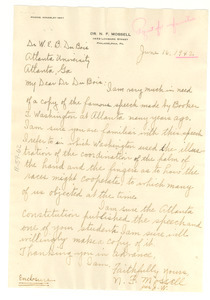 DR. N. F. MOSSELL
1432 LOMBARD STREET
PHILADELPHIA, PA.
June 12, 1942
Dr W. E. B. Du Bois
Atlanta University
Atlanta Ga
My Dear Dr Du Bois:
I am very much in need
of a copy of the famous speech made by Booker
T Washington at Atlanta many years ago.
I am sure you are familiar with this speech
I refer to in which Washington used the illus-
tration of the coordination of the palm of
the hand and the fingers as to how the
races might cooperate, to which many
of us objected at the time.
I am sure the Atlanta
Constitution published the speech and
one of your students I am sure will
willingly make a copy of it.
Thanking you in advance,
I am
Faithfully yours,
N. F. Mossell